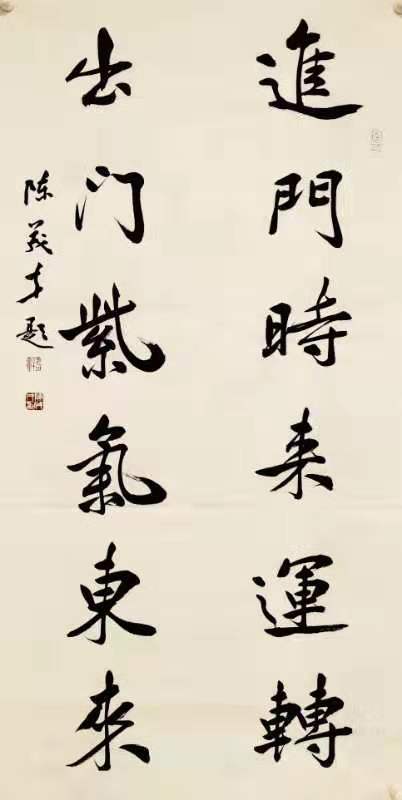 進門時来運轉
出门紫氣東來
陈義才題